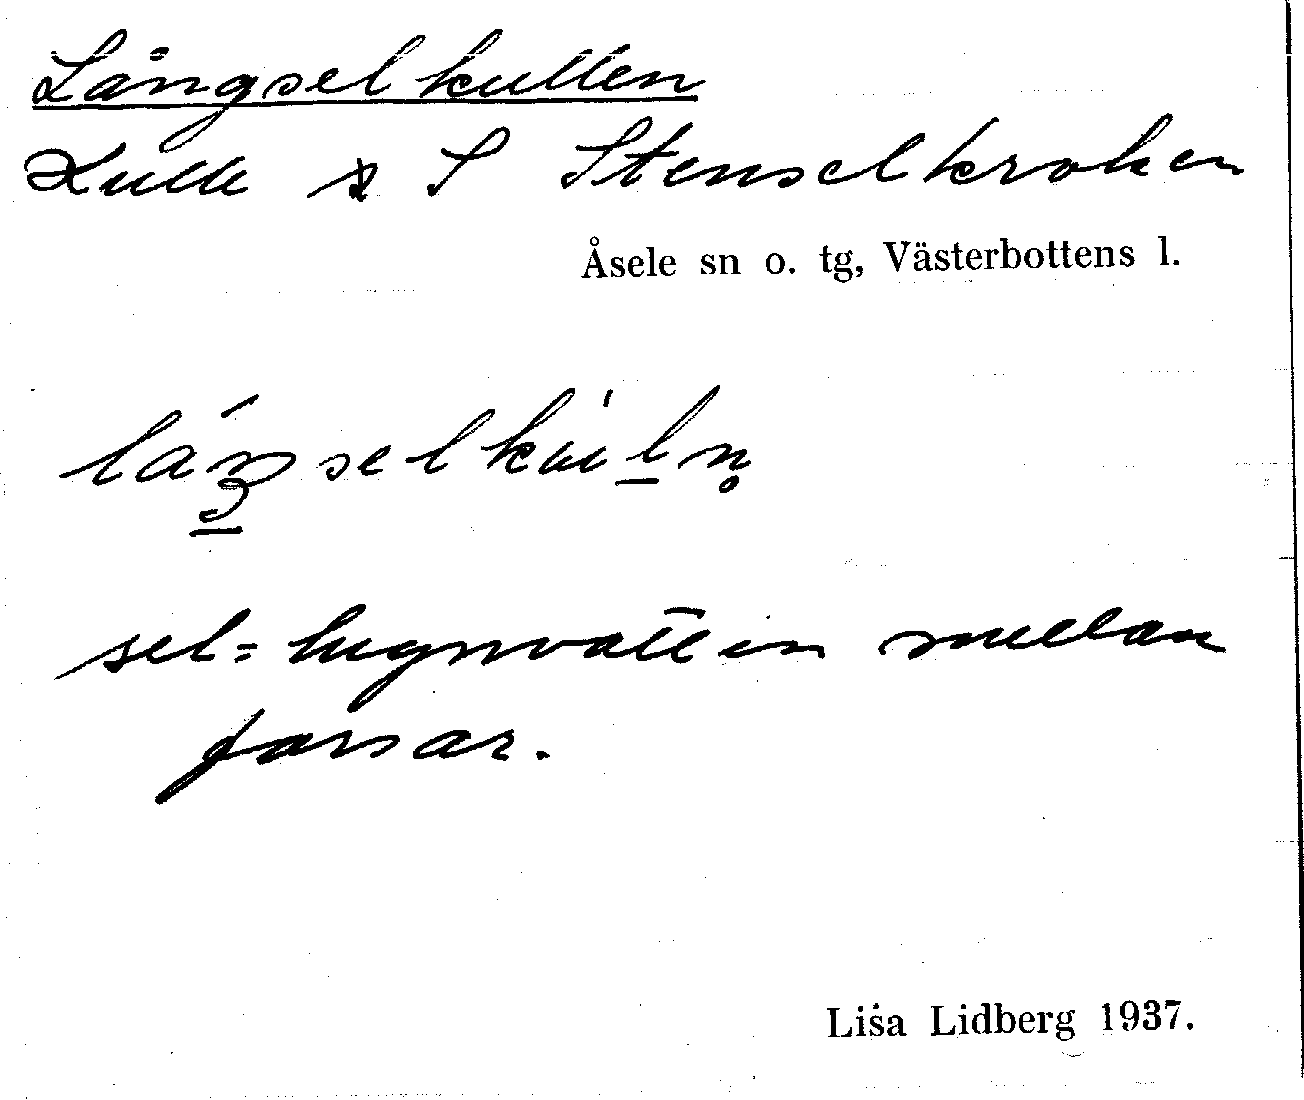 Långselkullen
Kulle S Stenselkroken
Åsele sn o. tg, Västerbottens l.
sel = lugnvatten mellan
forsar.
Lisa Lidberg 1937.